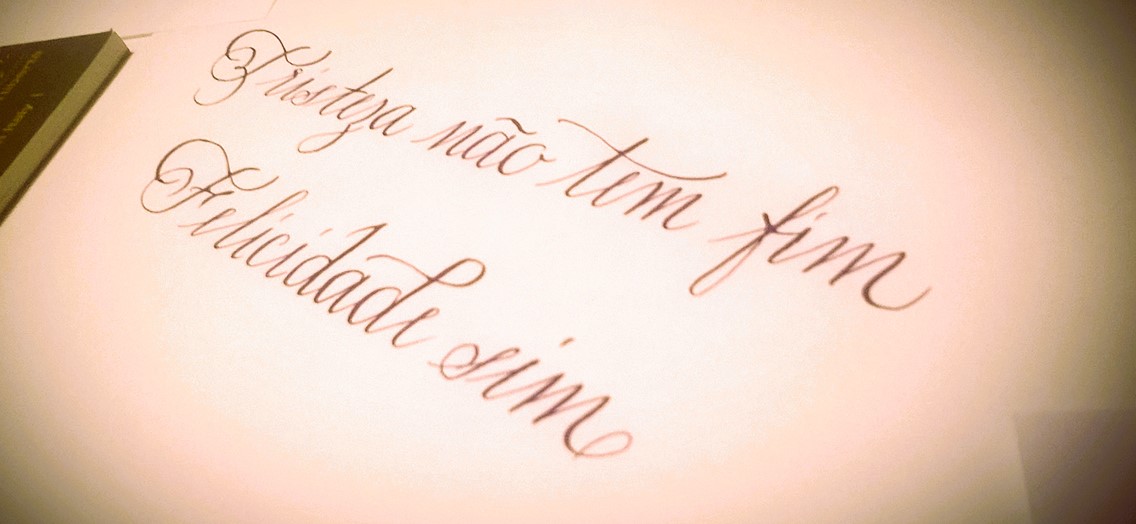 Tristeza não tem fim
Felicidade sim